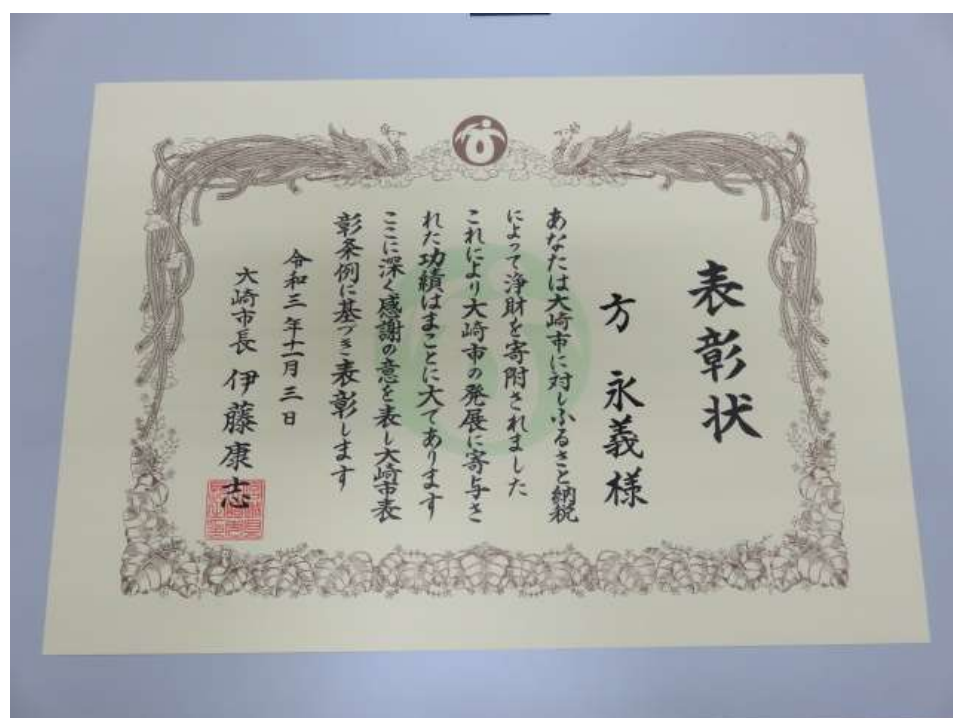 表彰状
方永義様
あなたは大崎市に対しふるさと納税
によって浄財を寄附されました
これにより大崎市の発展に寄与さ
れた功績はまことに大であります
ここに深く感謝の意を表し大崎市表
彰条例に基づき表彰します
令和三年十一月三日
大崎市長 伊藤康志